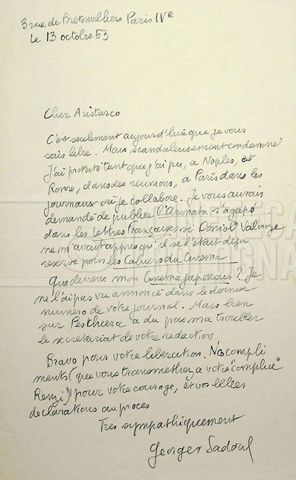 3 rue de Bretonvilliers Paris IVe
Le 13 octobre 53
Cher Aristarco
C'est seulement aujourd'hui que je vous
sais libre. Mais scandaleusement condamné
J'ai protesté tant que j'ai pu, a Naples, et
Rome, dans des reunions, a Paris dans les
journaux ou je collabore. Je vous aurais
demandé de publier l'Armata s'agapo
dans les Lettres Françaises si Doniol Valcroze
ne m'avait appris qu'il se l'etait deja
reservé pour les Cahiers du Cinema
Que devient mon Cinema Japonais? Je
ne l'ai pas vu annoncé dans le dernier
numero de votre journal. Mais bien
sur Peschiera a du pas mal troubler
le secretariat de votre redaction,
Bravo pour votre liberation. Nos compli
ments (que vous transmettrez a votre "complice"
Renzi) pour votre courage, et vos belles
declarations au proces
Tres sympathiquement
Georges Sadoul